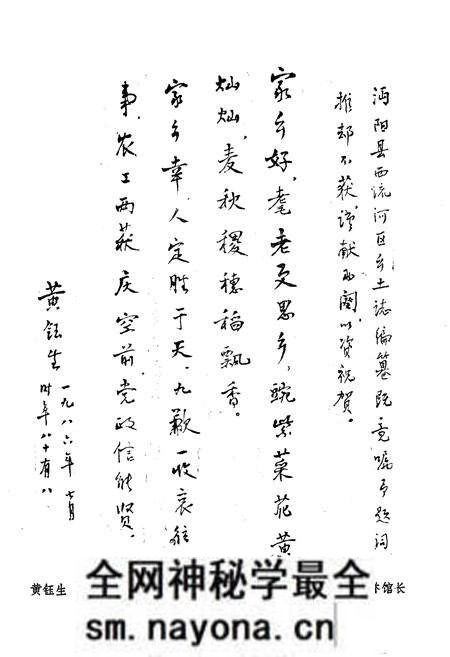 沔阳县西流河区乡土志编纂既竟嘱予题词
推却不获,谨献两阕,以资祝贺。
家乡好,耄老更思乡,豌紫菜花黄
灿灿,麦秋稷穗稻飘香。
家乡幸,人定胜于天,九歉一收哀往
事,农工两获庆空前,党政信能贤。
黄钰生 一九八六年七月
时年八十有八
黄钰生
馆长
全网神秘学最全
sm.nayona.cn